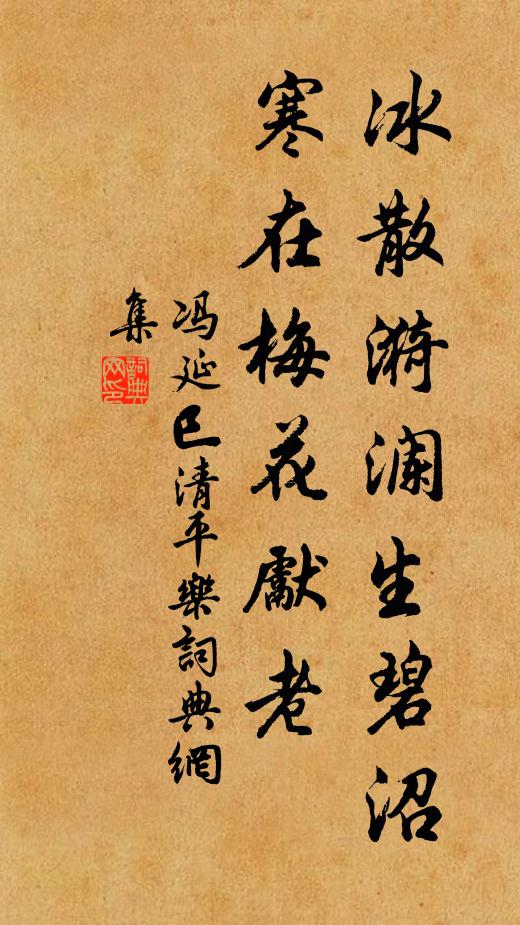 冰散漪澜生碧沼
寒在梅花獻老
冯延巳清平樂詞典網
集
詞典
网印